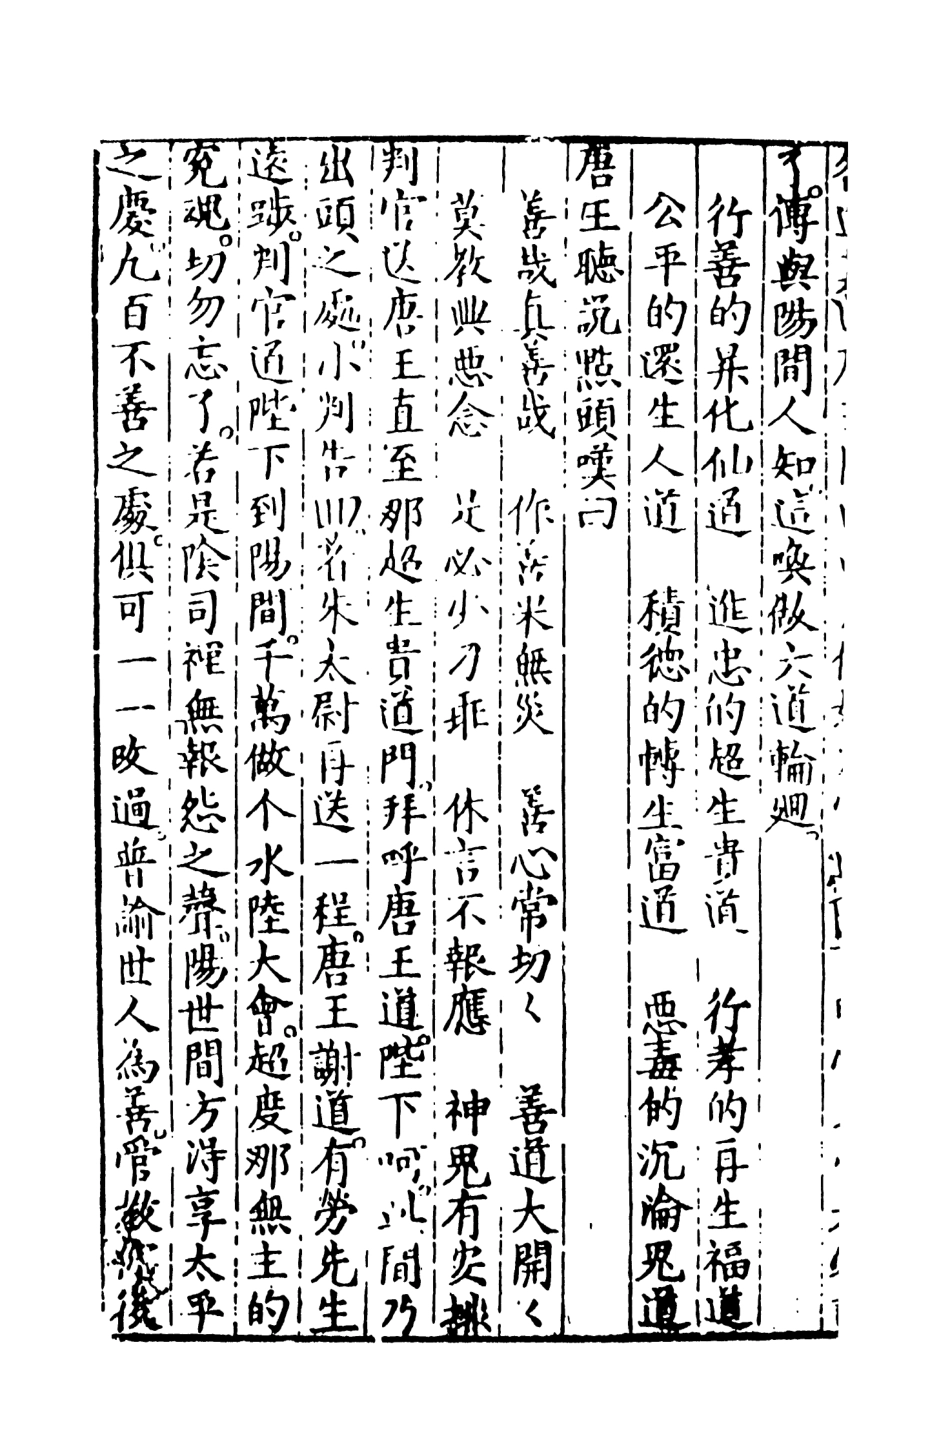 了。傳與陽間人知這喚做六道輪廻。
行善的昇化仙道 進忠的超生貴道 行孝的再生福道
公平的還生人道 積德的轉生富道 惡毒的沉淪鬼道
唐王聽說點頭嘆曰
善哉真善哉 作善果無災 善心常切〻 善道大開〻
莫教興惡念 是必少刁乖 休言不報應 神鬼有安排
判官送唐王直至那超生貴道門。拜呼唐王道。陛下呵。此間乃
出頭之處。小判告回。着朱太尉再送一程。唐王謝道。有勞先生
遠踄。判官道陛下到陽間。千萬做个水陸大會。超度那無主的
寃魂。切勿忘了。若是陰司裡無報怨之聲。陽世間方淂享太平
之慶。凢百不善之處。俱可一一改過。普諭世人為善。管教後